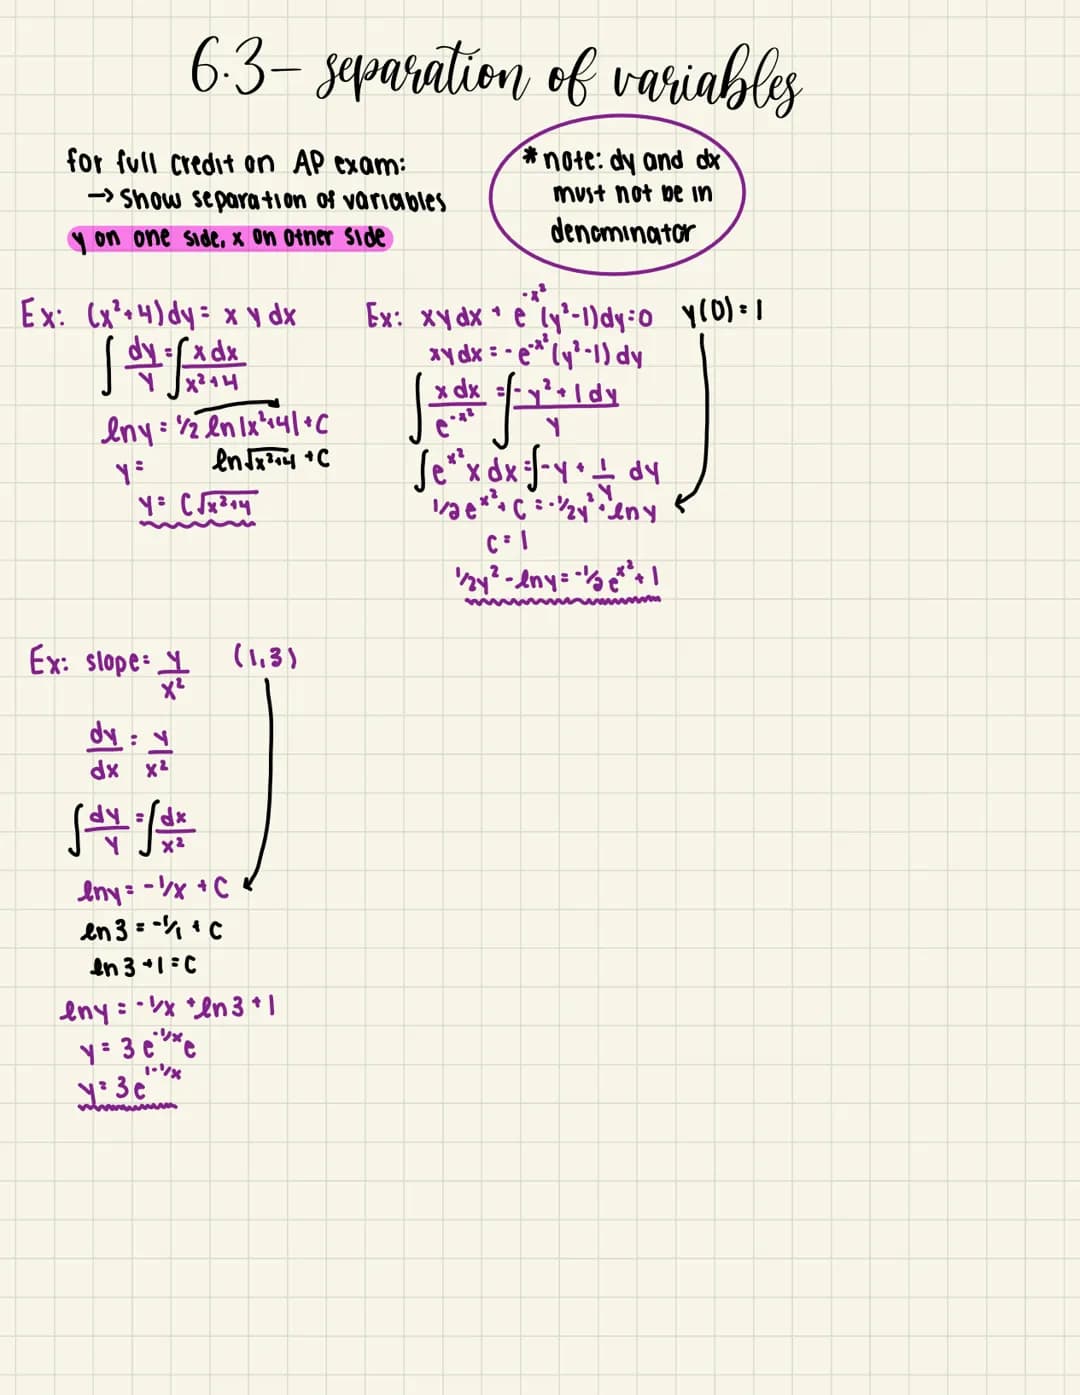 6.3 - separation of variables
for full credit on AP exam:
→ Show separation of variables
y on one side, x on other side
* note: dy and dx
must not be in
denominator
Ex: (x²+4)dy = x y dx
∫ dy/y = ∫ x dx/x²+4
lny = 1/2 ln|x²+4| + C
y = ln√x²+4 + C
y = C√x²+4
Ex: xy dx + e^-x² (y²-1)dy = 0 y(0) = 1
xy dx = -e^-x² (y²-1) dy
∫ x dx/e^-x² = ∫ -y²+1 dy/y
∫e^x² x dx = ∫-y + 1/y dy
1/2 e^x² + C = -1/2y² + lny
C = 1
1/2y² - lny = -1/2 e^x² + 1
Ex: slope = y/x² (1,3)
dy/dx = y/x²
∫ dy/y = ∫ dx/x²
lny = -1/x + C
ln3 = -1/1 + C
ln3 + 1 = C
lny = -1/x + ln3 + 1
y = 3 e^-1/x e
y = 3e^1-1/x